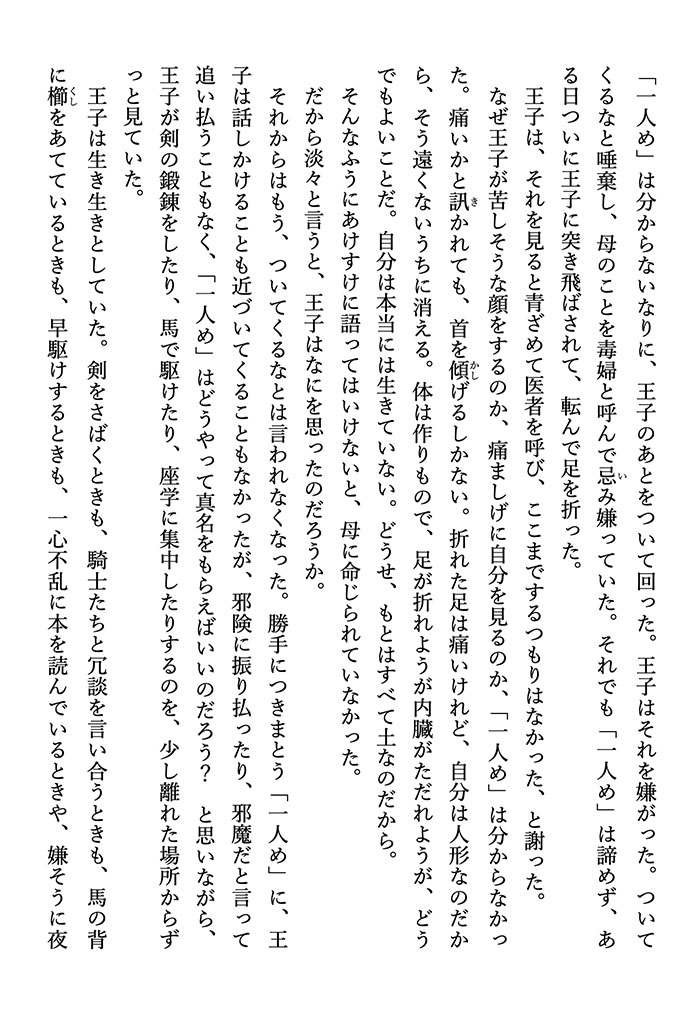 「一人め」は分からないなりに、王子のあとをついて回った。王子はそれを嫌がった。ついて
くるなと唾棄し、母のことを毒婦と呼んで忌み嫌っていた。それでも「一人め」は諦めず、あ
る日ついに王子に突き飛ばされて、転んで足を折った。
王子は、それを見ると青ざめて医者を呼び、ここまでするつもりはなかった、と謝った。
なぜ王子が苦しそうな顔をするのか、痛ましげに自分を見るのか、「一人め」は分からなかっ
た。痛いかと訊かれても、首を傾げるしかない。折れた足は痛いけれど、自分は人形なのだか
ら、そう遠くないうちに消える。体は作りもので、足が折れようが内臓がただれようが、どう
でもよいことだ。自分は本当には生きていない。どうせ、もとはすべて土なのだから。
そんなふうにあけすけに語ってはいけないと、母に命じられていなかった。
だから淡々と言うと、王子はなにを思ったのだろうか。
それからはもう、ついてくるなとは言われなくなった。勝手につきまとう「一人め」に、王
子は話しかけることも近づいてくることもなかったが、邪険に振り払ったり、邪魔だと言って
追い払うこともなく、「一人め」はどうやって真名をもらえばいいのだろう？　と思いながら、
王子が剣の鍛錬をしたり、馬で駆けたり、座学に集中したりするのを、少し離れた場所からず
っと見ていた。
王子は生き生きとしていた。剣をさばくときも、騎士たちと冗談を言い合うときも、馬の背
に櫛をあてているときも、早駆けするときも、一心不乱に本を読んでいるときや、嫌そうに夜